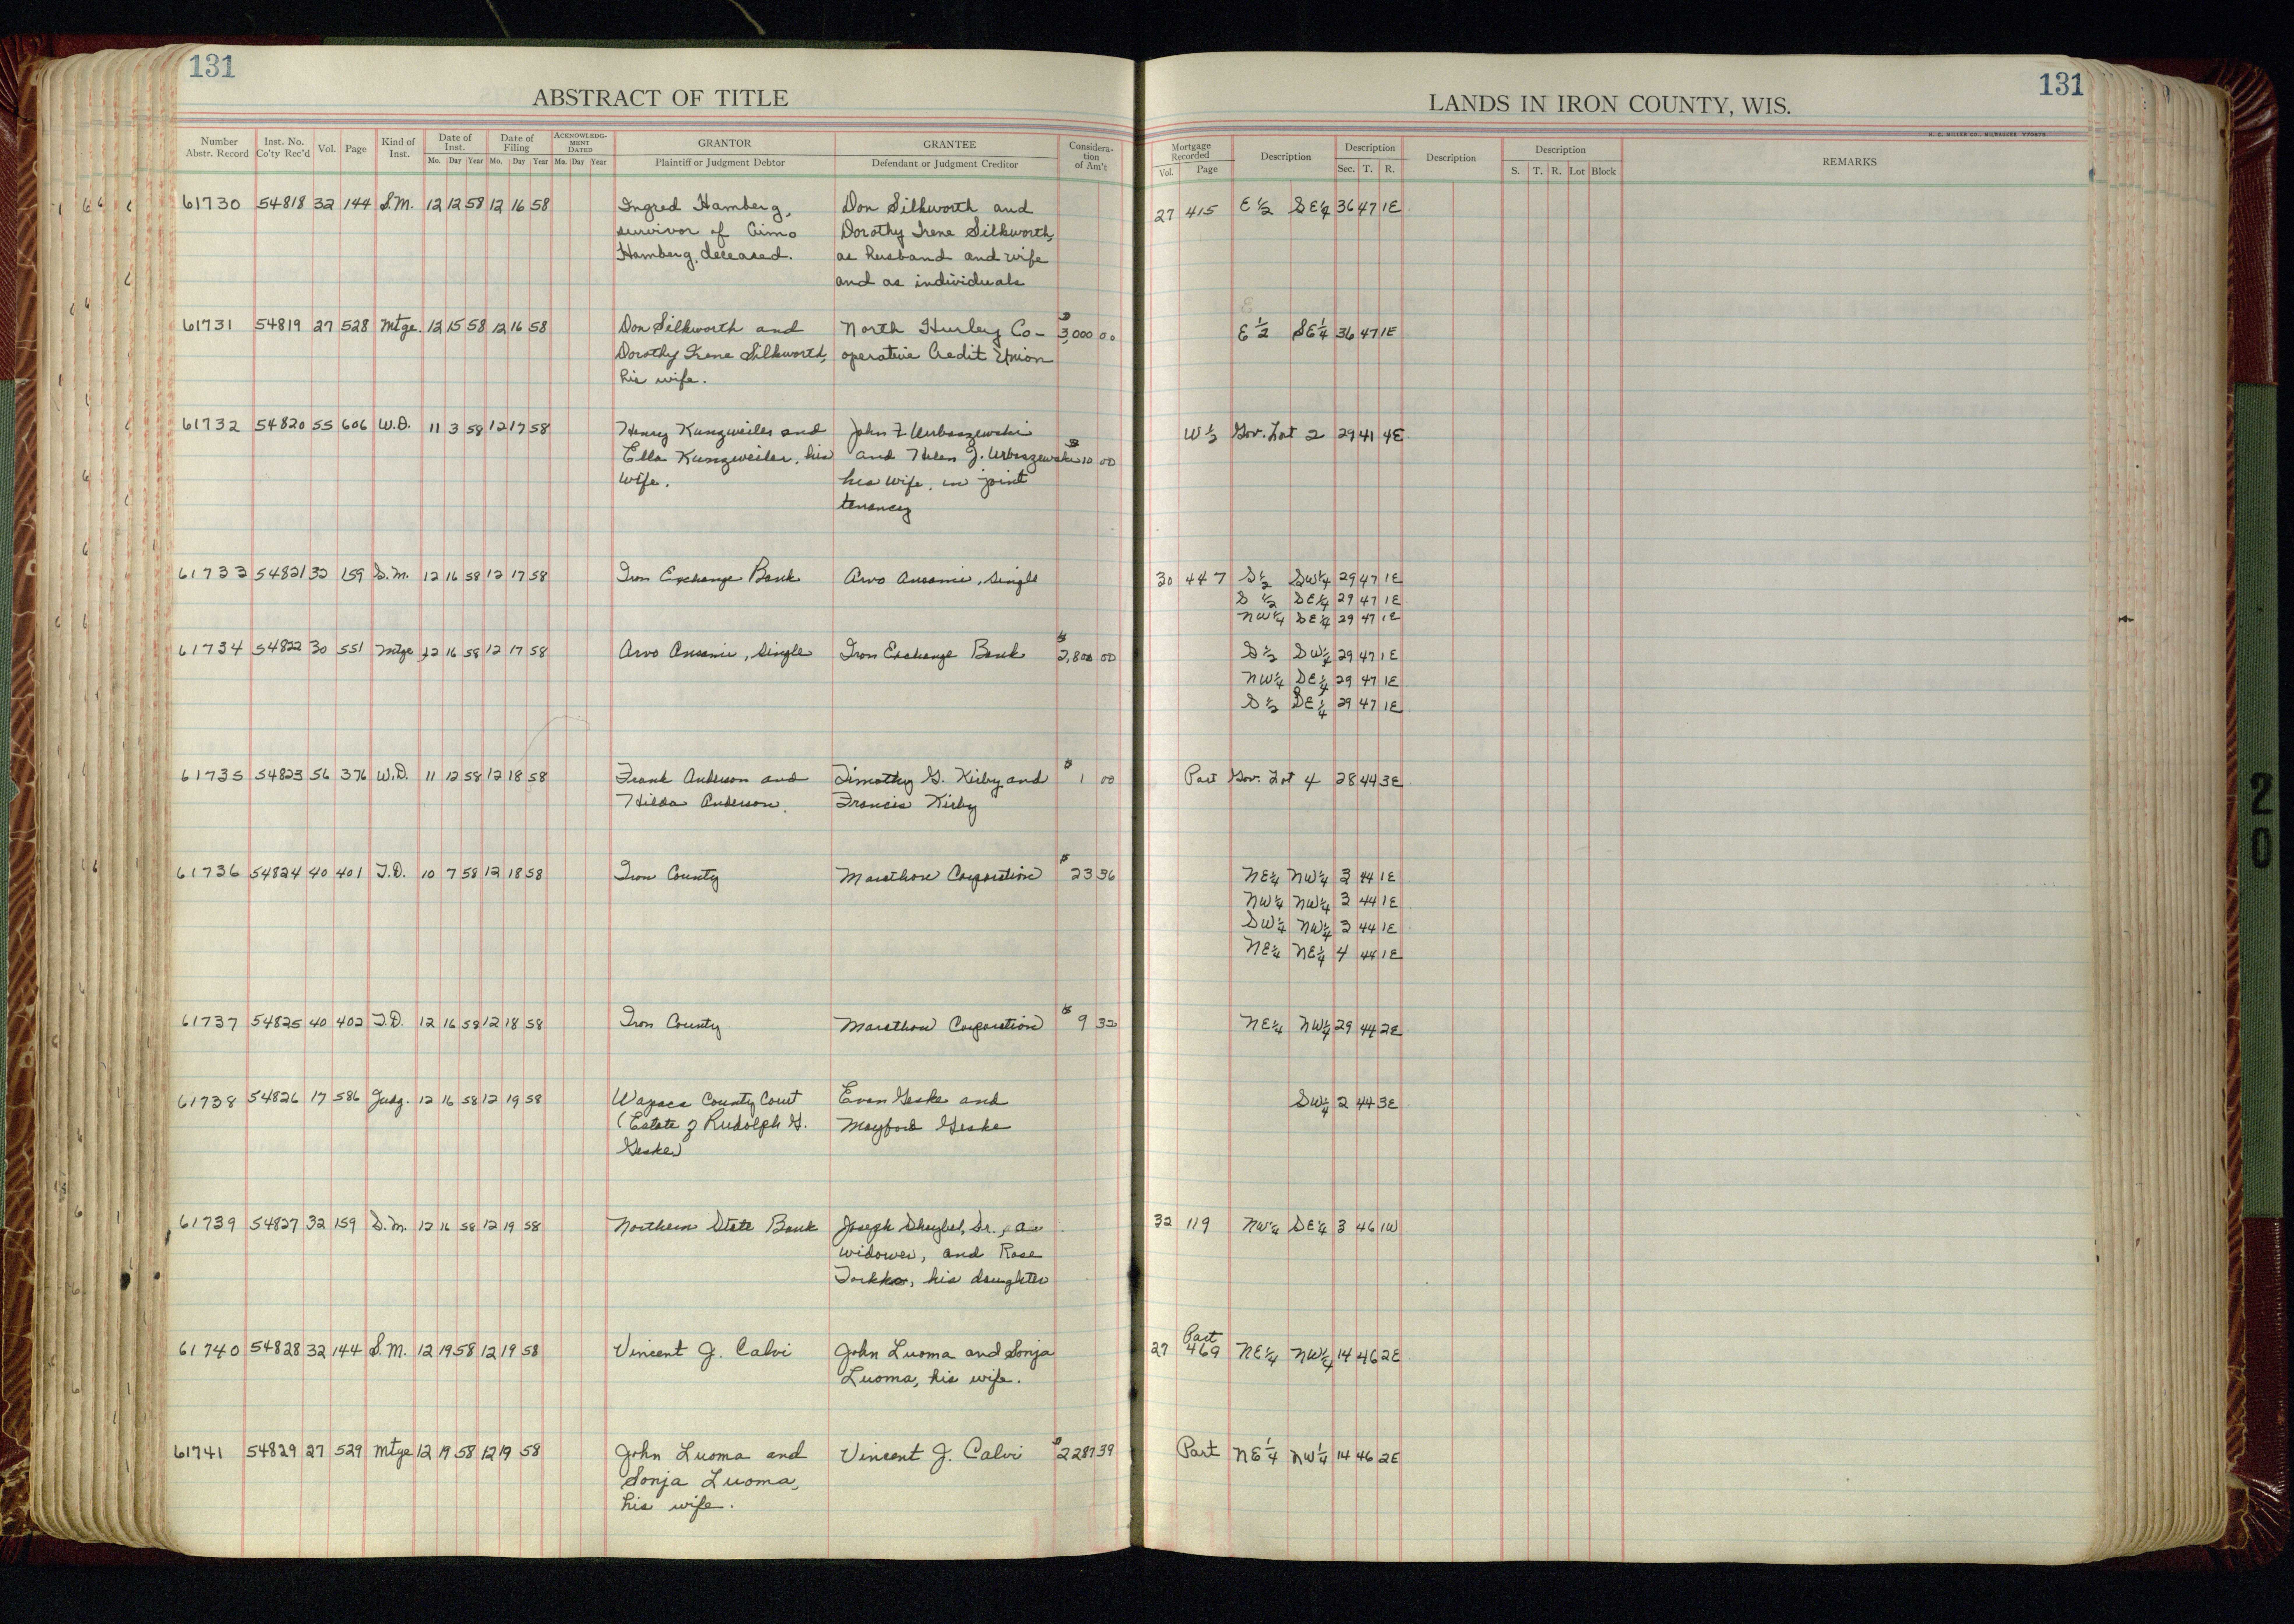 131
ABSTRACT OF TITLE
Number Abstr. Record | Inst. No. Co'ty Rec'd | Vol. | Page | Kind of Inst. | Date of Inst. Mo. Day Year | Date of Filing Mo. Day Year | ACKNOWLEDGMENT DATED Mo. Day Year | GRANTOR Plaintiff or Judgment Debtor | GRANTEE Defendant or Judgment Creditor | Consideration of Am't
61730 54818 32 144 S.M. 12 12 58 12 16 58 Ingred Hamberg, Don Silkworth and
survivor of Aimo Dorothy Irene Silkworth,
Hamberg, deceased. as husband and wife
and as individuals
61731 54819 27 528 Mtge. 12 15 58 12 16 58 Don Silkworth and North Hurley Co- $3,000 00
Dorothy Irene Silkworth, operative Credit Union
his wife.
61732 54820 55 606 W.D. 11 3 58 12 17 58 Henry Kunzweiler and John F Urbaszewski
Ella Kunzweiler, his and Helen J. Urbaszewski $10 00
wife. his wife, in joint
tenancy
61733 54821 32 159 S.M. 12 16 58 12 17 58 Iron Exchange Bank Arvo Ansami, single
61734 54822 30 551 Mtge 12 16 58 12 17 58 Arvo Ansami, single Iron Exchange Bank $2,800 00
61735 54823 56 376 W.D. 11 12 58 12 18 58 Frank Anderson and Timothy G. Kirby and $1 00
Hilda Anderson. Francis Kirby
61736 54824 40 401 T.D. 10 7 58 12 18 58 Iron County Marathon Corporation $23 36
61737 54825 40 402 T.D. 12 16 58 12 18 58 Iron County Marathon Corporation $9 32
61738 54826 17 586 Judg. 12 16 58 12 19 58 Wapaca County Court Evan Geske and
(Estate of Rudolph G. Mayford Geske
Geske)
61739 54827 32 159 S.M. 12 16 58 12 19 58 Northern State Bank Joseph Shaybel, Sr., a
widower, and Rose
his daughter
61740 54828 32 144 S.M. 12 19 58 12 19 58 Vincent J. Calvi John Luoma and Sonja
Luoma, his wife.
61741 54829 27 529 Mtge 12 19 58 12 19 58 John Luoma and Vincent J. Calvi $2287 39
Sonja Luoma,
his wife.
131
LANDS IN IRON COUNTY, WIS.
H. C. MILLER CO., MILWAUKEE
Mortgage Recorded Vol. Page | Description | Description Sec. T. R. | Description | Description S. T. R. Lot Block | REMARKS
27 415 E 1/2 SE 1/4 36 47 1E
E 1/2 SE 1/4 36 47 1E
W 1/2 Gov. Lot 2 29 41 4E
30 447 S 1/2 SW 1/4 29 47 1E
S 1/2 SE 1/4 29 47 1E
NW 1/4 SE 1/4 29 47 1E
S 1/2 SW 1/4 29 47 1E
NW 1/4 SE 1/4 29 47 1E
S 1/2 SE 1/4 29 47 1E
Part Gov. Lot 4 28 44 3E
NE 1/4 NW 1/4 3 44 1E
NW 1/4 NW 1/4 3 44 1E
SW 1/4 NW 1/4 3 44 1E
NE 1/4 NE 1/4 4 44 1E
NE 1/4 NW 1/4 29 44 2E
SW 1/4 2 44 3E
32 119 NW 1/4 SE 1/4 3 46 1W
Part
27 469 NE 1/4 NW 1/4 14 46 2E
Part NE 1/4 NW 1/4 14 46 2E
20